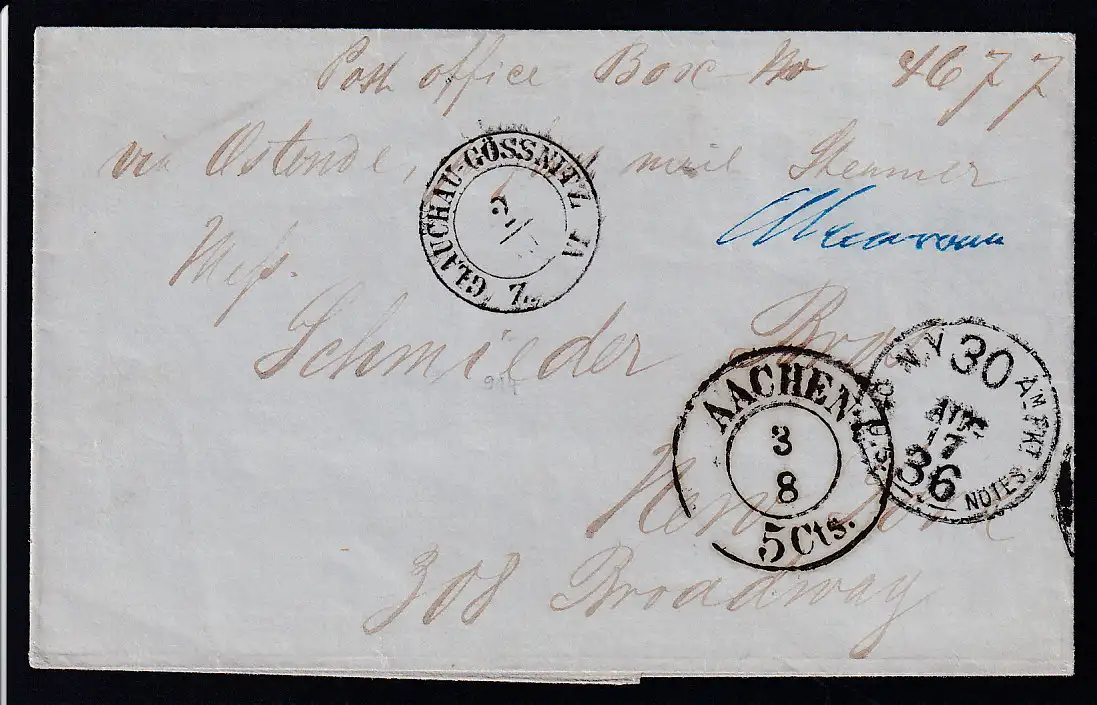 Post office Box No 4677
via Ostende, mail Steamer
Mess.
Schmieder Bros
New York
308 Broadway
GLAUCHAU-GÖSSNITZ
AACHEN
3
8
5 Cts.
N.Y. 30 AM PKT
AUG
17
36
NOTES
917